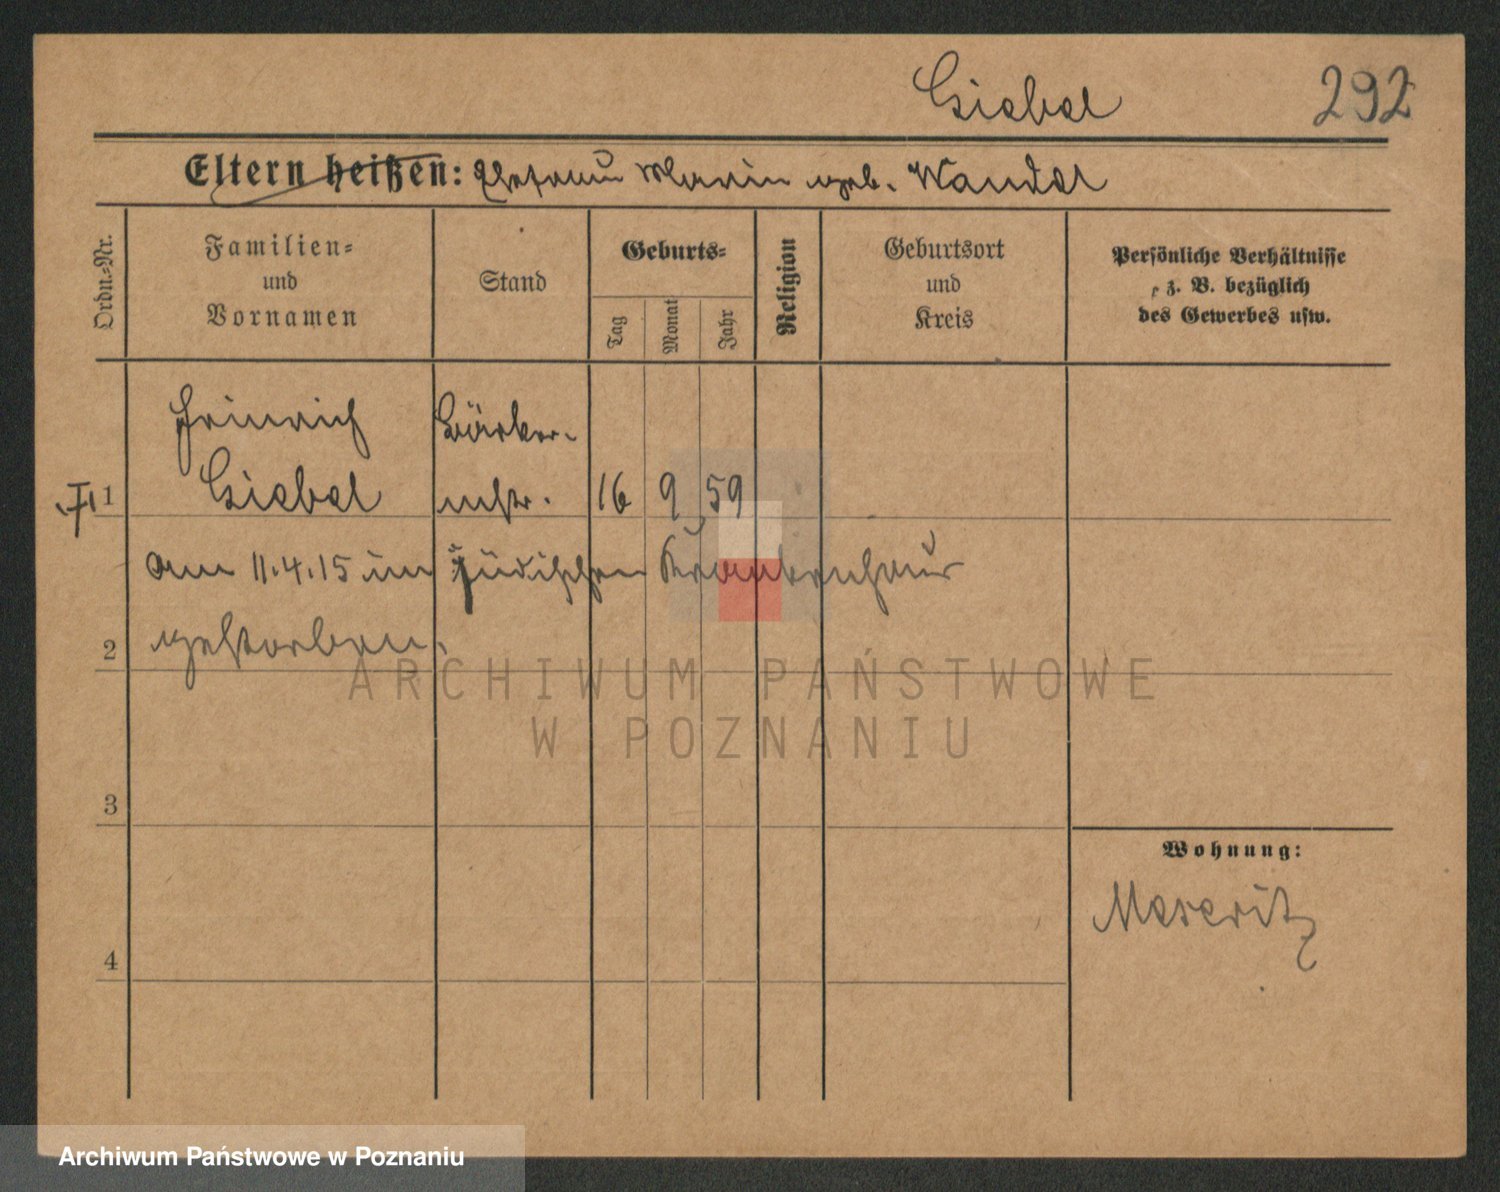 Giebel 292
Eltern heißen: Ehefrau Marie geb. Wandel
Ordn.=Nr.
Familien=
und
Vornamen
Stand
Geburts=
Tag
Monat
Jahr
Religion
Geburtsort
und
Kreis
Persönliche Verhältnisse
z. B. bezüglich
des Gewerbes usw.
Heinrich Bäcker-
1 Giebel mstr. 16 9 59
am 11.4.15 im jüdischen Krankenhaus
2 gestorben.
ARCHIWUM PAŃSTWOWE
W POZNANIU
3
Wohnung:
Meseritz
4
Archiwum Państwowe w Poznaniu